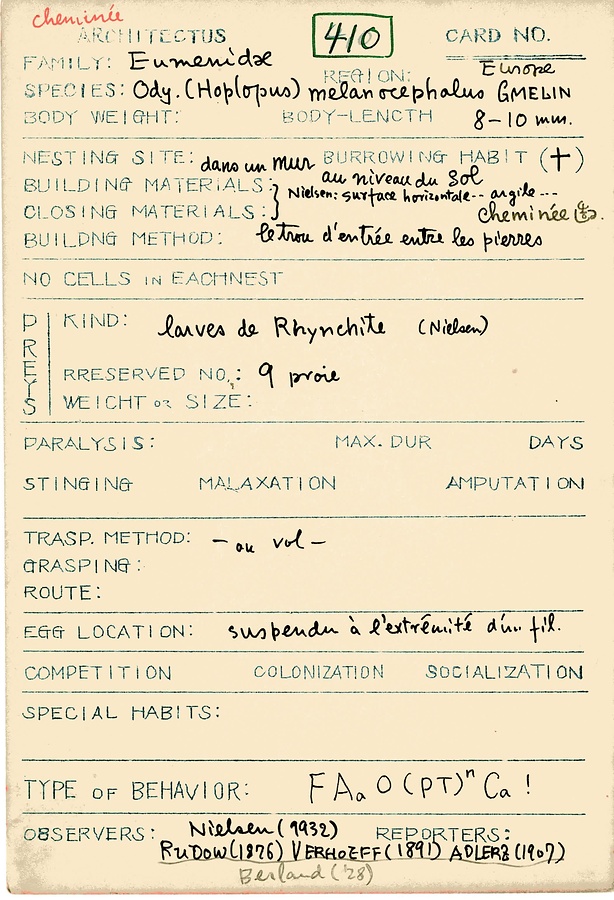 cheminée
ARCHITECTUS 410 CARD NO.
FAMILY: Eumenidæ REGION: Europe
SPECIES: Ody. (Hoplopus) melanocephalus GMELIN
BODY WEIGHT: BODY-LENGTH 8-10 mm.
NESTING SITE: dans un mur BURROWING HABIT (+)
au niveau du sol
BUILDING MATERIALS: Nielsen: surface horizontale-- argile ---
CLOSING MATERIALS: cheminée
BUILDNG METHOD: le trou d'entrée entre les pierres
NO CELLS IN EACHNEST
PREYS
KIND: larves de Rhynchite (Nielsen)
RRESERVED NO.: 9 proie
WEIGHT OR SIZE:
PARALYSIS: MAX. DUR DAYS
STINGING MALAXATION AMPUTATION
TRASP. METHOD: - au vol -
GRASPING:
ROUTE:
EGG LOCATION: suspendu à l'extrêmité d'un fil.
COMPETITION COLONIZATION SOCIALIZATION
SPECIAL HABITS:
TYPE OF BEHAVIOR: F Aa O (PT)ⁿ Ca !
OBSERVERS: Nielsen (1932) REPORTERS:
RUDOW (1876) VERHOEFF (1891) ADLERZ (1907)
Berland ('28)